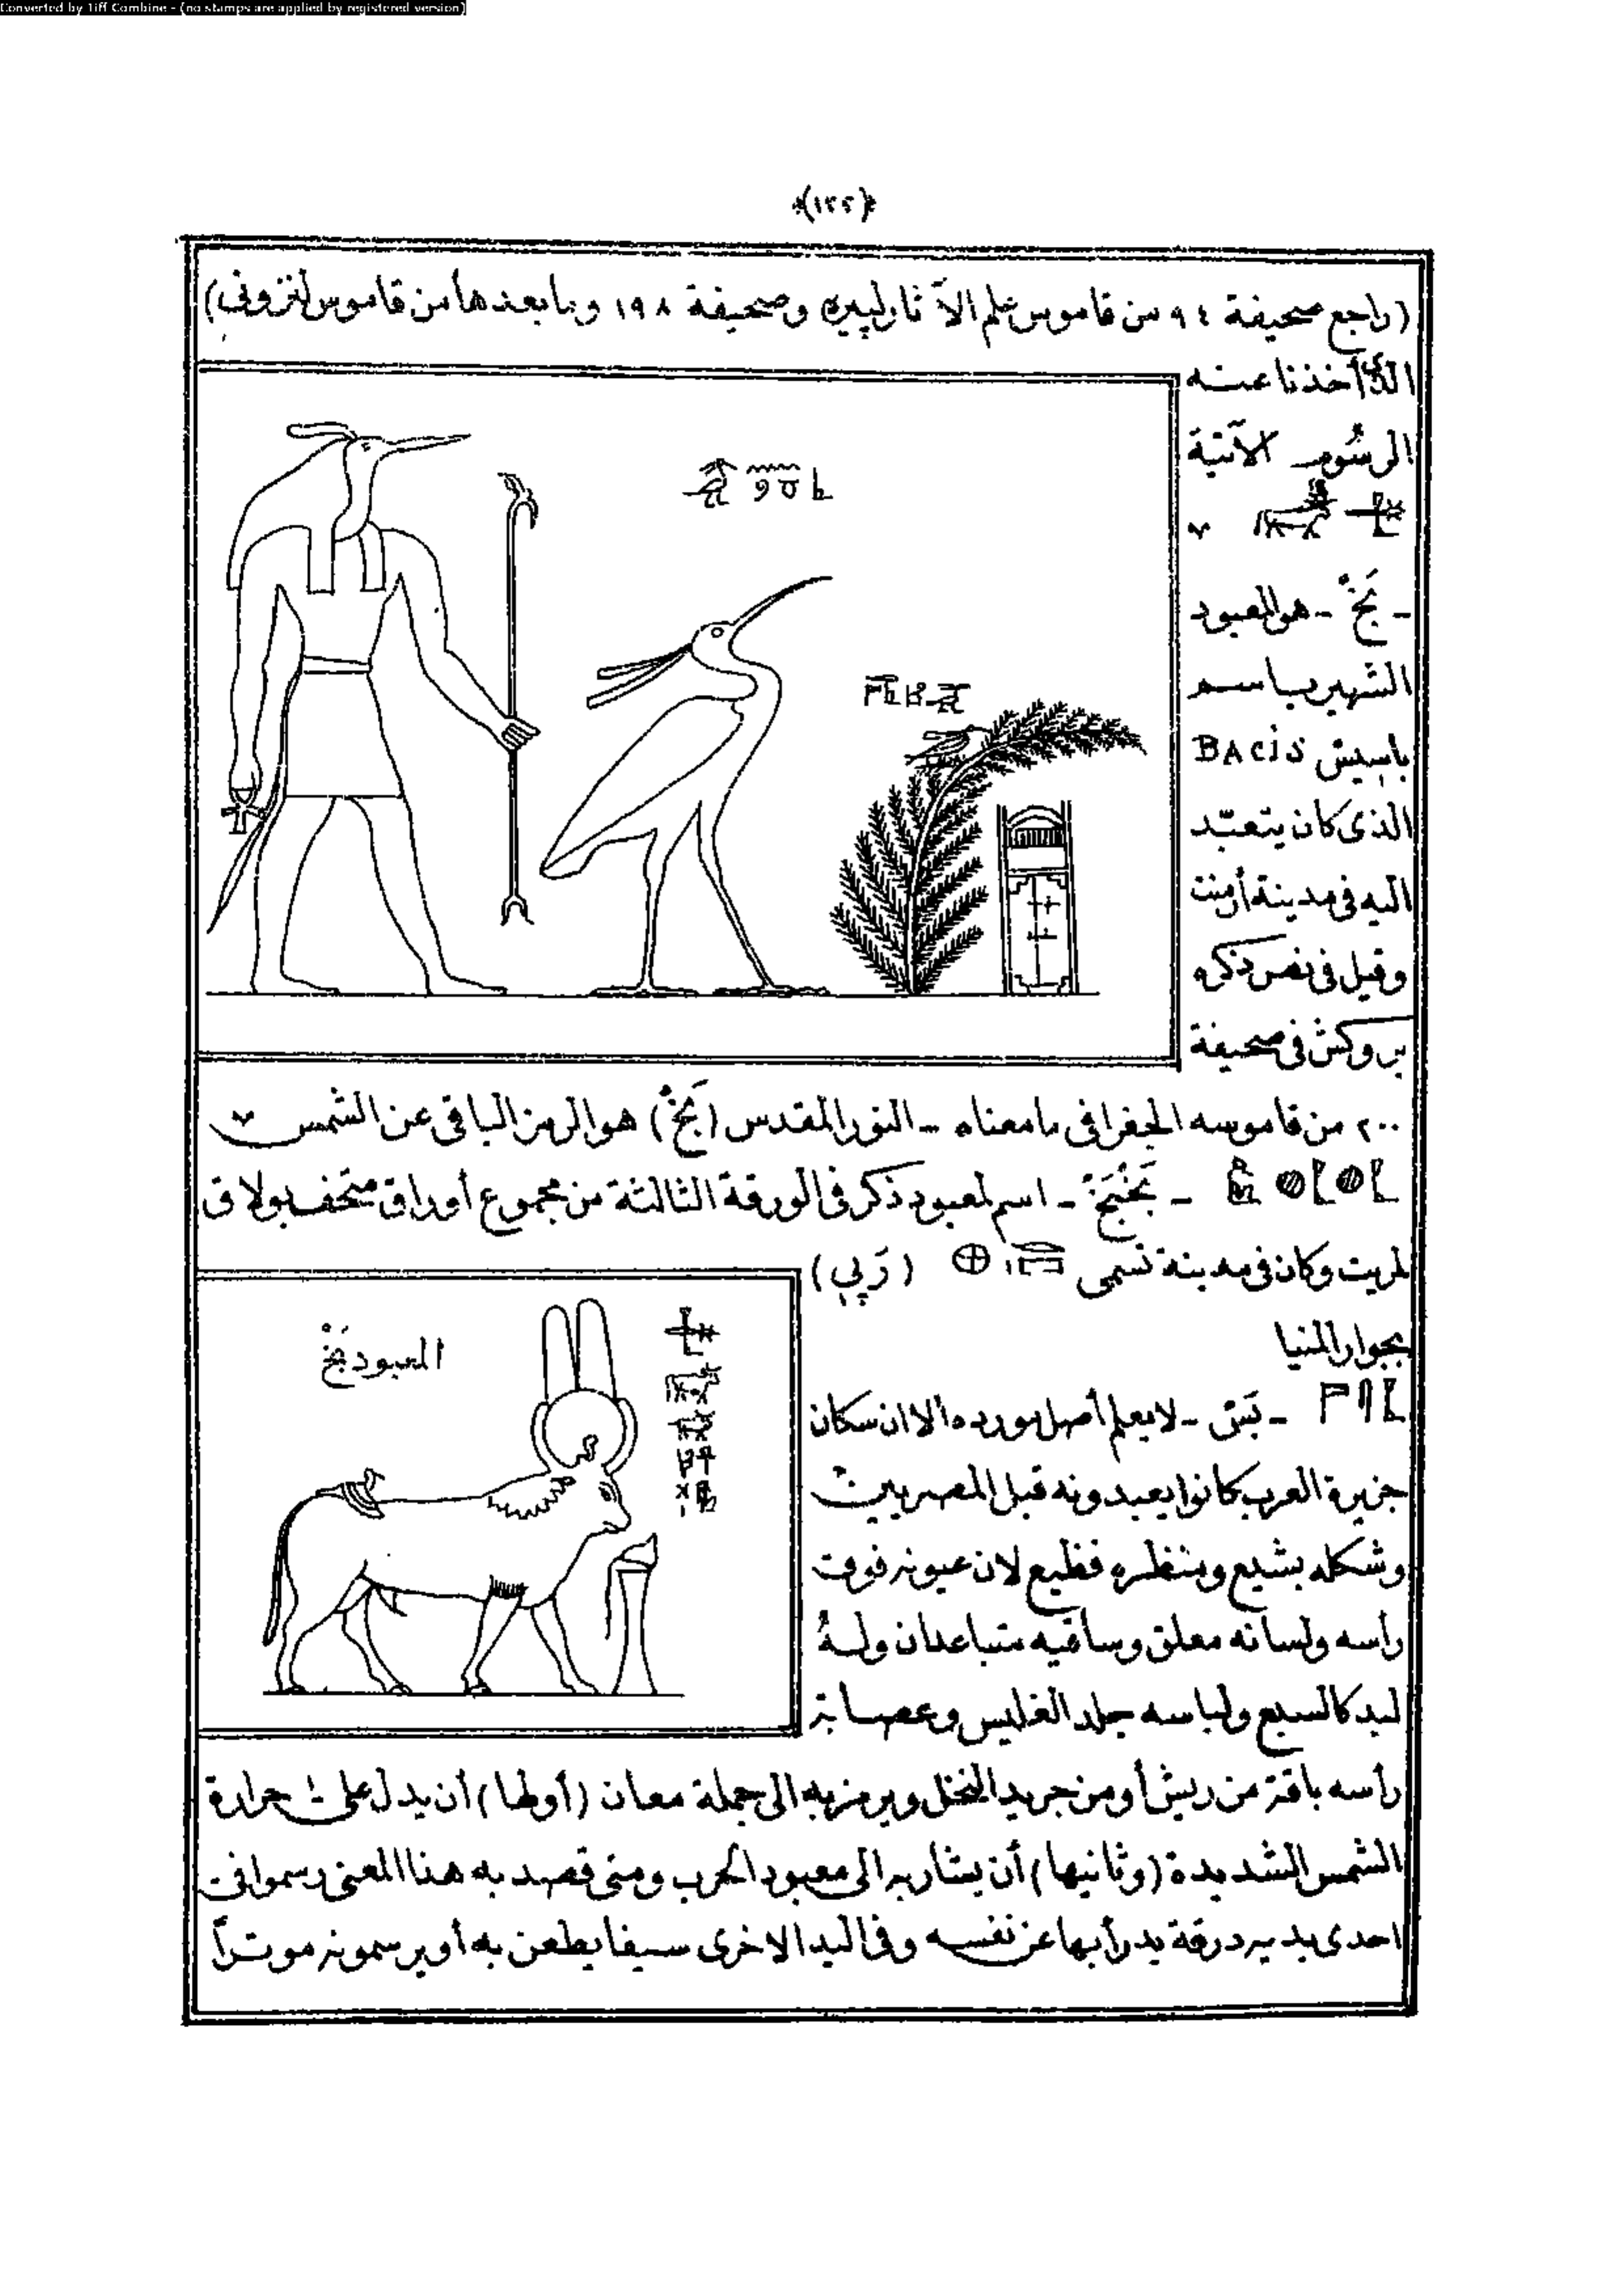 Converted by Tiff Combine - (no stamps are applied by registered version)
﴿١٢٢﴾
(راجع صحيفة ٩٤ من قاموس علم الآثار لپييره وصحيفة ١٩٨ وما بعدها من قاموس لنزونى)
الذى أخذنا عنه
الرسوم الآتية
- بَخْ - هو المعبود
الشهير باسم
باسيش BACIS
الذى كان يتعبّد
اليه فى مدينة أرمنت
وقيل فى نص ذكره
بروكش فى صحيفة
٢٠٠ من قاموسه الجغرافى ما معناه - الثور المقدس (بَخْ) هو الرمز الباقى عن الشمس
- بَخْبَخْ - اسم لمعبود ذكر فى الورقة الثالثة من مجموع أوراق متحف بولاق
لمريت وكان فى مدينة تسمى (رَپِى)
بجوار المنيا
المعبود بَخْ
- بَسْ - لا يعلم أصل مورده الا ان سكان
جزيرة العرب كانوا يعبدونه قبل المصريين
وشكله بشيع ومنظره فظيع لان عيونه فوق
راسه ولسانه معلق وساقيه متباعدان وله
لبد كالسبع ولباسه جلد الغليس وعصابة
رأسه باقة من ريش أو من جريد النخل ويرمز به الى جملة معان (أولها) أن يدل على حرارة
الشمس الشديدة (وثانيها) أن يشار به الى معبود الحرب ومتى قصد به هذا المعنى رسموا فى
احدى يديه درقة يدرأ بها عن نفسه وفى اليد الاخرى سيفا يطعن به أو يرسمونه موتراً